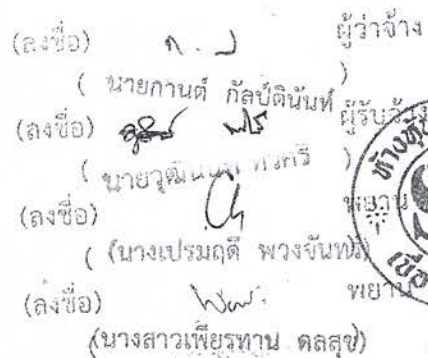 (ลงชื่อ) ผู้ว่าจ้าง
( นายกานต์ กัลป์ตินันท์ )
(ลงชื่อ) ผู้รับจ้าง
( )
(ลงชื่อ) พยาน
( (นางเปรมฤดี พวงจันทร์)
(ลงชื่อ) พยาน
(นางสาวเพียรทาน ดลสุข)
ห้างหุ้น